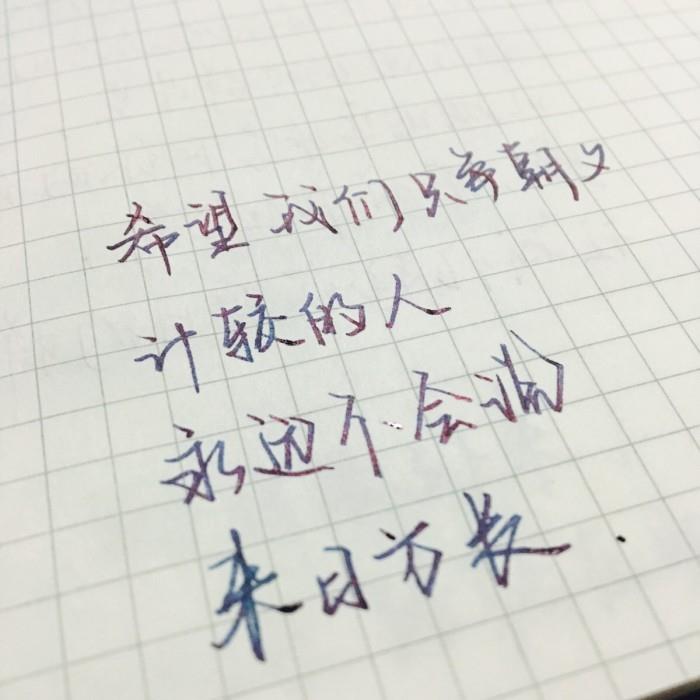 希望我们只争朝夕
计较的人
永远不会懂
来日方长.